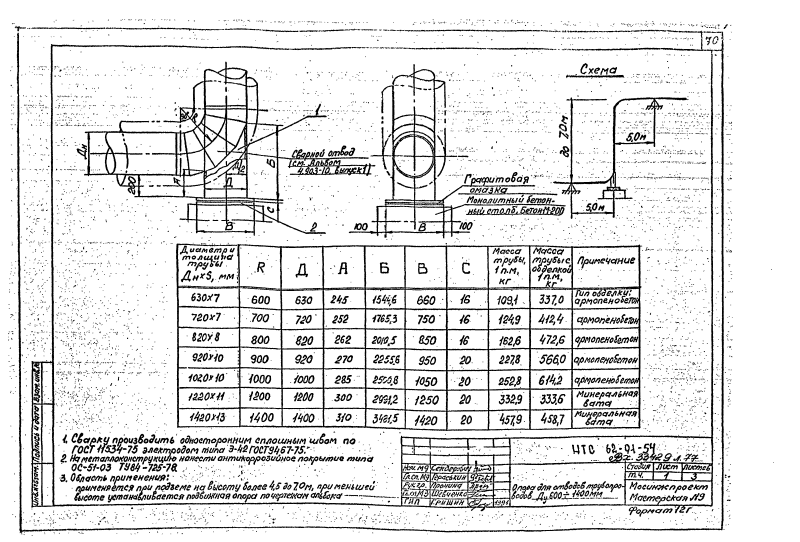 70
Схема
до 7,0м
5,0м
5,0м
1
Дн
Сварной отвод
[см. Альбом
4.903-10. Выпуск 1]
Б
А
Д
200
С
В
2
Графитовая
смазка
Монолитный бетон-
ный столб. Бетон М-200
100
В
100
Диаметр и толщина трубы Дн×S, мм
R
Д
А
Б
В
С
Масса трубы, 1 п.м, кг
Масса трубы с обделкой 1 п.м, кг
Примечание
630×7 600 630 245 1544,6 660 16 109,1 337,0 Тип обделку: армопенобетон
720×7 700 720 252 1765,3 750 16 124,9 412,4 армопенобетон
820×8 800 820 262 2010,5 850 16 162,6 472,6 армопенобетон
920×10 900 920 270 2255,6 950 20 227,8 566,0 армопенобетон
1020×10 1000 1000 285 1050 20 252,8 614,2 армопенобетон
1220×11 1200 1200 300 2991,2 1250 20 332,9 333,6 Минеральная вата
1420×13 1400 1400 310 3481,5 1420 20 457,9 458,7 Минеральная вата
1. Сварку производить односторонним сплошным швом по
ГОСТ 11534-75 электродом типа Э-42 ГОСТ 9467-75.
2. На металлоконструкцию нанести антикоррозийное покрытие типа
ОС-51-03 ТУ84-725-78.
3. Область применения:
применяется при подземе на высоту более 4,5 до 7,0м, при меньшей
высоте устанавливается подвижная опора по чертежам альбома
Инв.№ подл. Подпись и дата Взам. инв.№
НТС 62-91-54
Стадия Лист Листов
Т.ч. 1 3
Опора для отводов трубопро-
водов Ду 600÷1400мм
Мосинжпроект
Мастерская №9
ГИП Гришин
Формат 12г